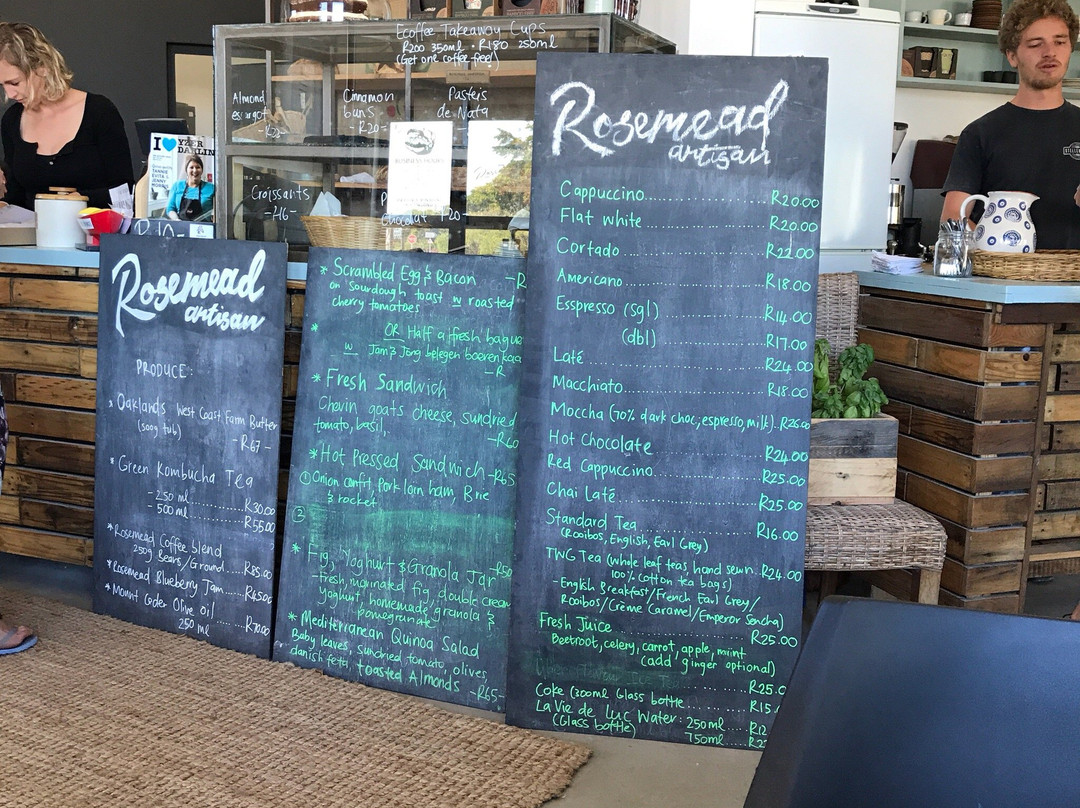 Ecoffee Takeaway Cups
R200 350ml • R180 250ml
(Get one coffee free!)
Almond
escargot
Cinnamon
buns
- R20 -
Pasteis
de Nata
Croissants
-16-
Chocolat R20-
BUSINESS HOURS
I
YZER
DARLIN
R10-
Rosemead
artisan
PRODUCE:
* Oaklands West Coast Farm Butter
(500g tub)
- R67 -
* Green Kombucha Tea
- 250 ml............R30.00
- 500 ml............R55.00
* Rosemead Coffee blend
250g Beans/Ground.....R85.00
* Rosemead Blueberry Jam....R45.00
* Mount Ceder Olive oil
250 ml ........R70.00
* Scrambled Egg & Bacon -R
on sourdough toast w roasted
cherry tomatoes
*
OR Half a fresh bague
w Jam & Jong belegen boerenkaa
-R
* Fresh Sandwich
Chevin goats cheese, sundried
tomato, basil,
-R60
* Hot Pressed Sandwich -R65
① Onion confit, Pork loin ham, Brie
& rocket
②
* Fig, Yoghurt & Granola Jar -R50
- Fresh, marinated fig, double cream
yoghut, homemade granola &
pomegranate
* Mediterranean Quinoa Salad
Baby leaves, sundried tomato, olives,
danish feta, toasted Almonds -R65-
Rosemead
artisan
Cappuccino..................R20.00
Flat white ..................R20.00
Cortado ..................R22.00
Americano ..................R18.00
Esspresso (sgl) ..................R14.00
(dbl) ..................R17.00
Laté ..................R24.00
Macchiato..................R18.00
Moccha (70% dark choc, espresso, milk). R26.00
Hot Chocolate ..................R24.00
Red Cappuccino..................R25.00
Chai Laté ..................R25.00
Standard Tea ..................R16.00
(Rooibos, English, Earl Grey)
TWG Tea (whole leaf teas, hand sewn ..R24.00
100% cotton tea bags)
- English Breakfast/French Earl Grey/
Rooibos/Crème Caramel/Emperor Sencha)
Fresh Juice ..................R25.00
Beetroot, celery, carrot, apple, mint
(add ginger optional)
..................R25.0
Coke (300ml Glass bottle ..........R15.
La Vie de Luc Water: 250ml .....R12
(Glass bottle) 750ml.....R2